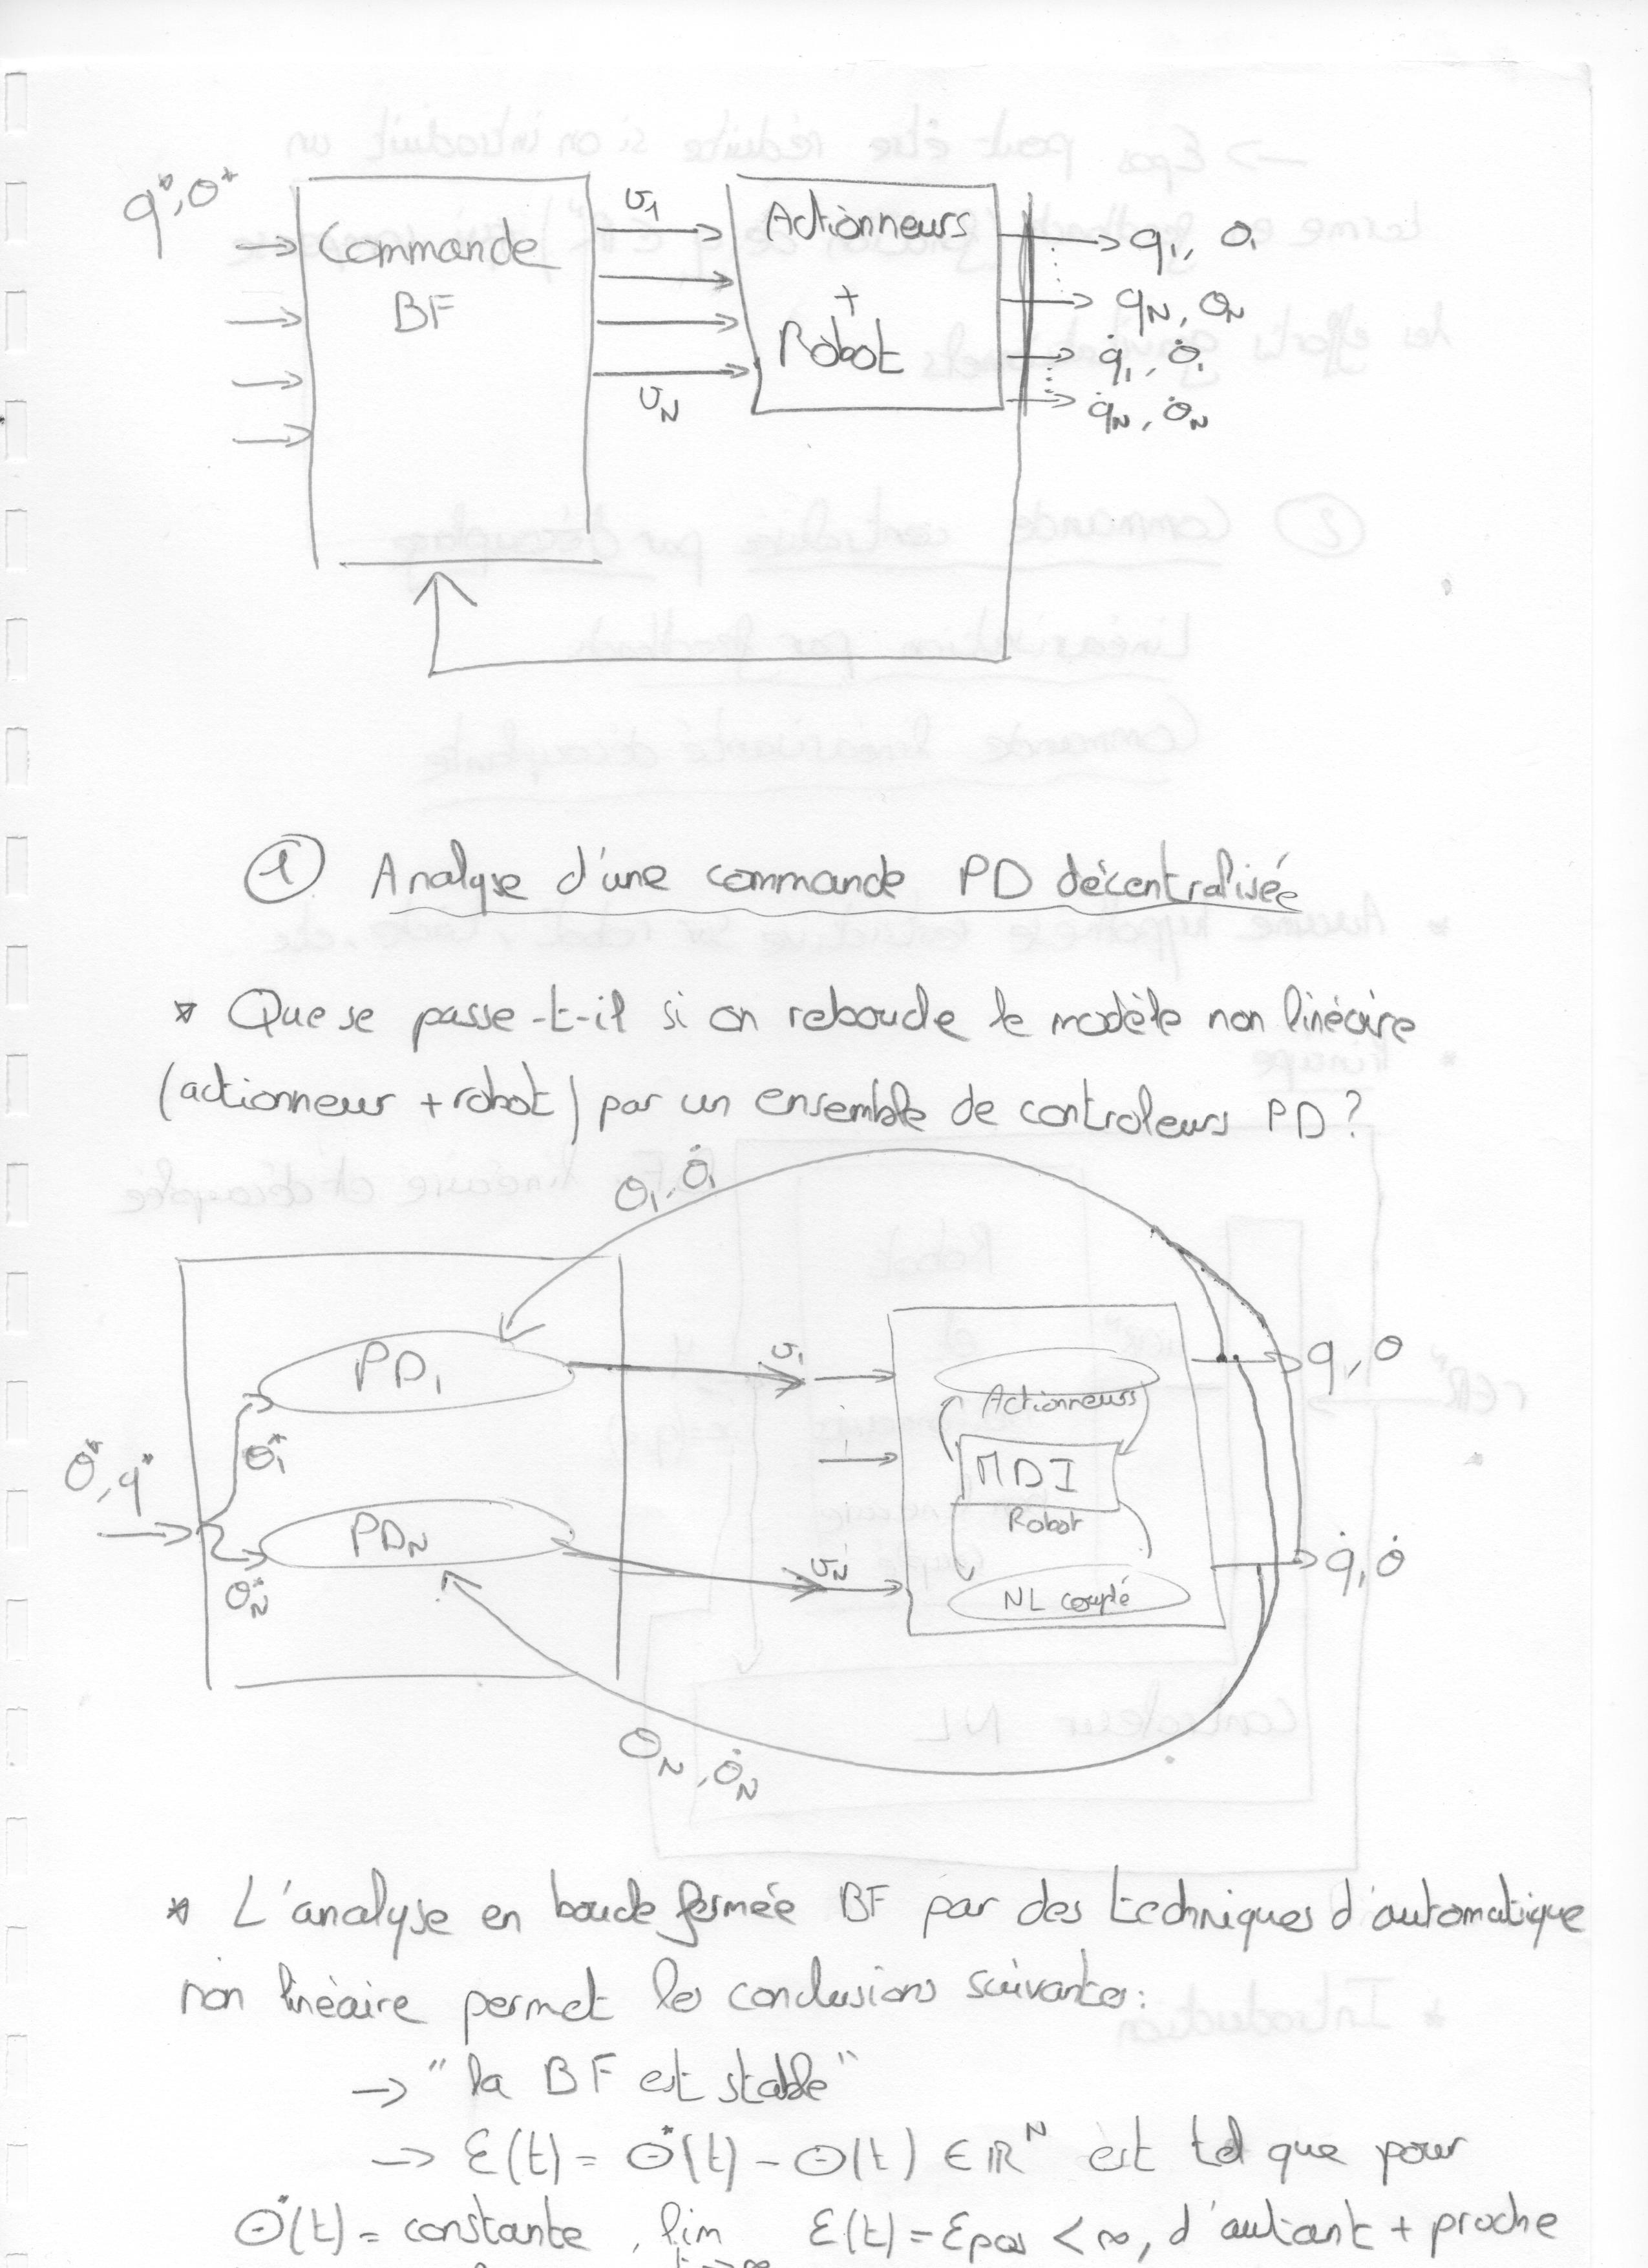 q*, θ*
Commande
BF
υ1
υN
Actionneurs
+
Robot
q1, θ1
qN, θN
q̇1, θ̇1
q̇N, θ̇N
① Analyse d'une commande PD décentralisée
* Que se passe-t-il si on reboucle le modèle non linéaire
(actionneur + robot) par un ensemble de controleurs PD ?
θ1, θ̇1
PD1
υ1
Actionneurs
q, θ
θ*, q*
θ1*
MDI
Robot
PDN
θN*
υN
NL couplé
q̇, θ̇
θN, θ̇N
* L'analyse en boucle fermée BF par des techniques d'automatique
non linéaire permet les conclusions suivantes :
→ "la BF est stable"
→ Ɛ(t) = θ*(t) - θ(t) ∈ ℝN est tel que pour
θ*(t) = constante, lim Ɛ(t) = Ɛpos < ∞, d'autant + proche
t→∞